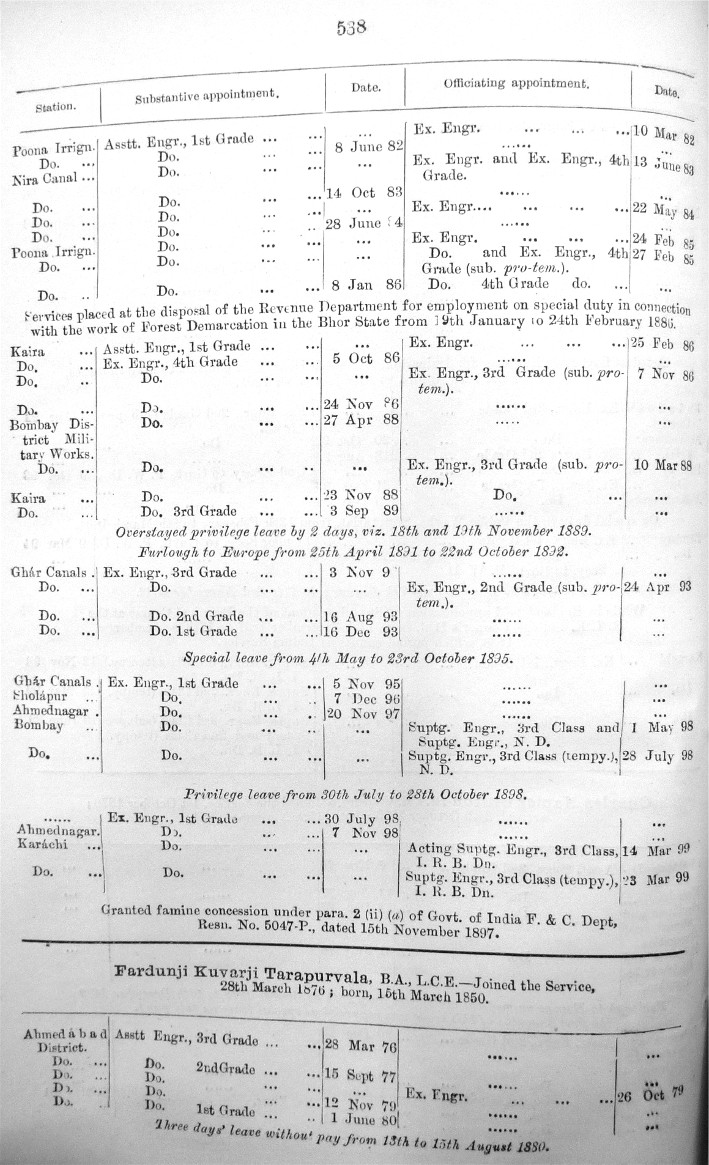 538
Station. Substantive appointment. Date. Officiating appointment. Date.
Poona Irrign. Asstt. Engr., 1st Grade ... ... ... Ex. Engr. ... ... ... 10 Mar 82
Do. ... Do. ... ... 8 June 82 ...... ...
Nira Canal ... Do. ... ... ... Ex. Engr. and Ex. Engr., 4th 13 June 83
Grade.
Do. ... Do. ... ... 14 Oct 83 ...... ...
Do. ... Do. ... ... ... Ex. Engr.... ... ... ... 22 May 84
Do. ... Do. ... ... 28 June 84 ...... ...
Poona Irrign. Do. ... ... ... Ex. Engr. ... ... ... 24 Feb 85
Do. ... Do. ... ... ... Do. and Ex. Engr., 4th 27 Feb 85
Grade (sub. pro-tem.).
Do. .. Do. ... ... 8 Jan 86 Do. 4th Grade do. ... ...
Services placed at the disposal of the Revenue Department for employment on special duty in connection
with the work of Forest Demarcation in the Bhor State from 19th January to 24th February 1886.
Kaira ... Asstt. Engr., 1st Grade ... ... ... Ex. Engr. ... ... ... 25 Feb 86
Do. ... Ex. Engr., 4th Grade ... ... 5 Oct 86 ...... ...
Do. .. Do. ... ... ... Ex. Engr., 3rd Grade (sub. pro- 7 Nov 86
tem.).
Do. ... Do. ... ... 24 Nov 86 ...... ...
Bombay Dis- Do. ... ... 27 Apr 88 ...... ...
trict Mili-
tary Works.
Do. ... Do. ... .. ... Ex. Engr., 3rd Grade (sub. pro- 10 Mar 88
tem.).
Kaira ... Do. ... ... 23 Nov 88 Do. ... ...
Do. ... Do. 3rd Grade ... ... 3 Sep 89 ...... ...
Overstayed privilege leave by 2 days, viz. 18th and 19th November 1889.
Furlough to Europe from 25th April 1891 to 22nd October 1892.
Ghár Canals . Ex. Engr., 3rd Grade ... ... 3 Nov 9 ...... ...
Do. ... Do. ... ... ... Ex, Engr., 2nd Grade (sub. pro- 24 Apr 93
tem.).
Do. ... Do. 2nd Grade ... ... 16 Aug 93 ...... ...
Do. ... Do. 1st Grade ... ... 16 Dec 93 ...... ...
Special leave from 4th May to 23rd October 1895.
Ghár Canals . Ex. Engr., 1st Grade ... ... 5 Nov 95 ...... ...
Sholápur ... Do. ... .. 7 Dec 96 ...... ...
Ahmednagar . Do. ... . 20 Nov 97 ...... ...
Bombay .. Do. ... .. ... Suptg. Engr., 3rd Class and 1 May 98
Suptg. Engr., N. D.
Do. ... Do. ... ... ... Suptg. Engr., 3rd Class (tempy.), 28 July 98
N. D.
Privilege leave from 30th July to 28th October 1898.
...... Ex. Engr., 1st Grade ... ... 30 July 98 ...... ...
Ahmednagar. Do. ... ... 7 Nov 98 ...... ...
Karáchi ... Do. ... ... ... Acting Suptg. Engr., 3rd Class, 14 Mar 99
I. R. B. Dn.
Do. ... Do. ... ... ... Suptg. Engr., 3rd Class (tempy.), 23 Mar 99
I. R. B. Dn.
Granted famine concession under para. 2 (ii) (a) of Govt. of India F. & C. Dept,
Resn. No. 5047-P., dated 15th November 1897.
Fardunji Kuvarji Tarapurvala, B.A., L.C.E.—Joined the Service,
28th March 1876; born, 15th March 1850.
Ahmedabad Asstt Engr., 3rd Grade ... ... 28 Mar 76 ...... ...
District.
Do. ... Do. 2nd Grade ... ... 15 Sept 77 ...... ...
Do. ... Do. ... ... ... Ex. Engr. ... ... ... 26 Oct 79
Do. ... Do. ... ... 12 Nov 79 ...... ...
Do. ... Do. 1st Grade ... .. 1 June 80 ...... ...
Three days' leave without pay from 13th to 15th August 1880.